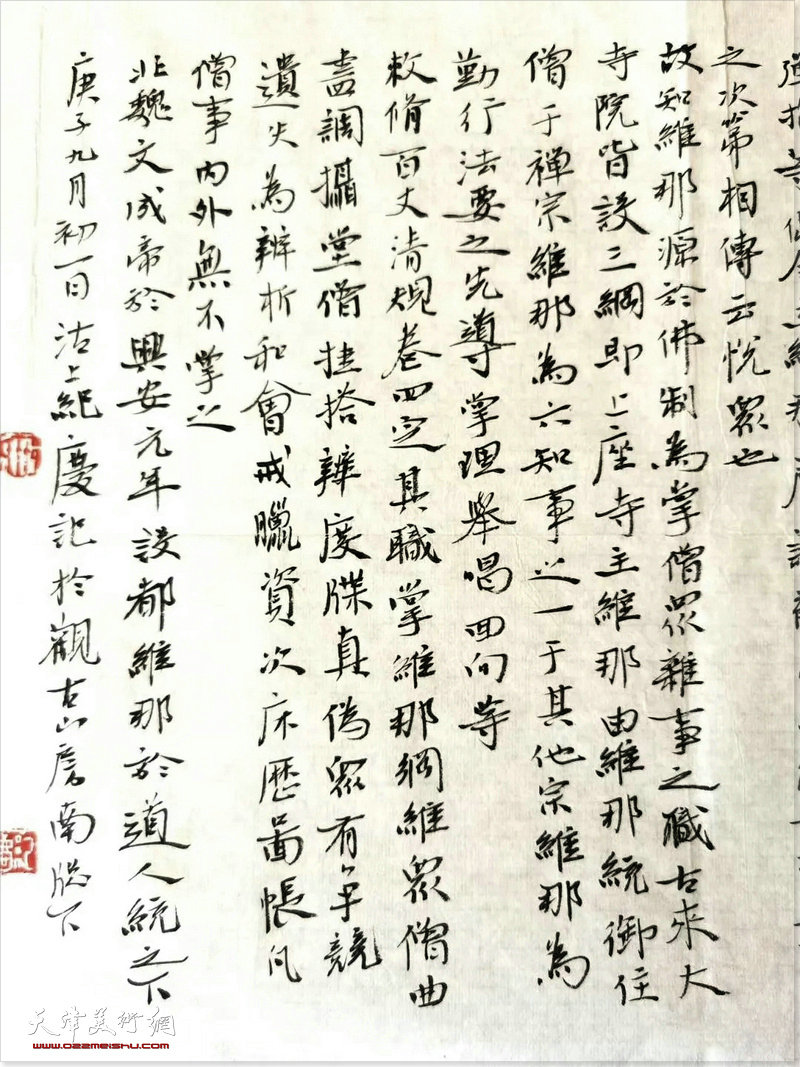 之次第相傳云悅眾也
故知維那源於佛制為掌僧眾雜事之職古來大
寺院皆設三綱即上座寺主維那由維那統御住
僧于禪宗維那為六知事之一于其他宗維那為
勤行法要之先導掌理舉唱回向等
敕脩百丈清規卷四定其職掌維那綱維眾僧曲
盡調攝堂僧挂搭辨度牒真偽眾有爭競
遺失為辨析和會戒臘資次床歷圖帳凡
僧事內外無不掌之
北魏文成帝於興安元年設都維那於道人統之下
庚子九月初一日沽上紀慶記於觀古山房南牕下
天津美術網
www.022meishu.com